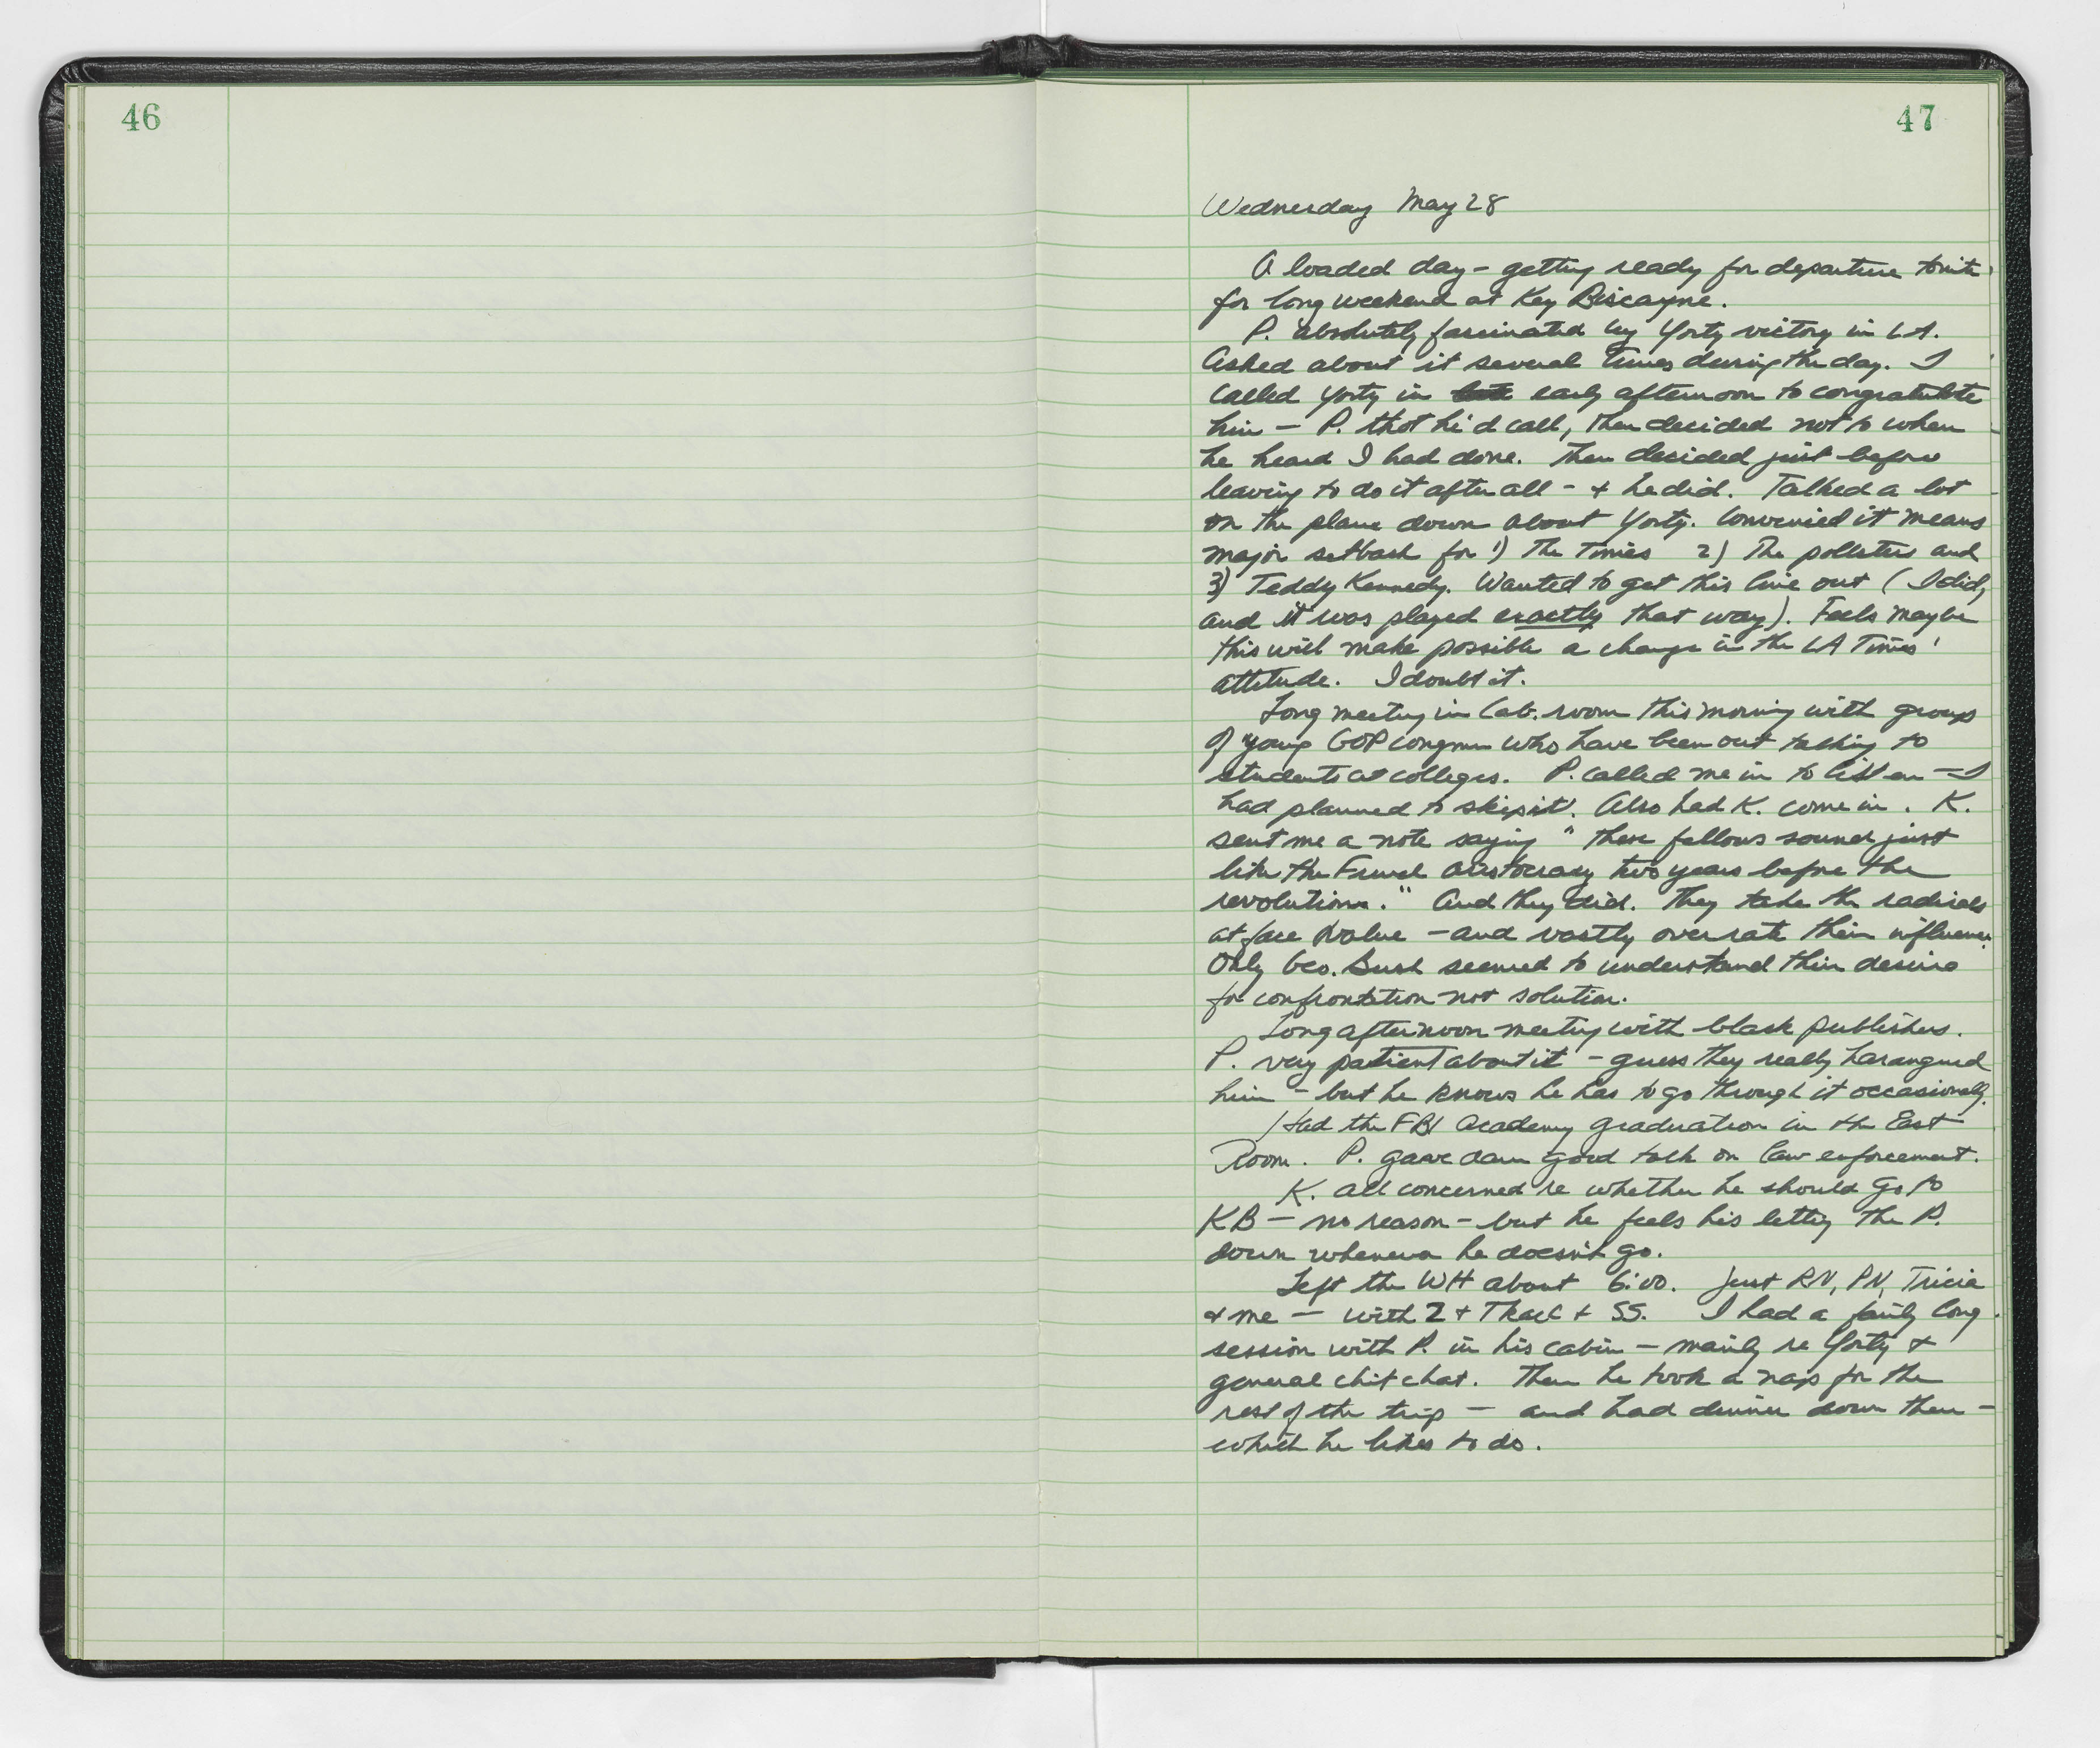 46
47
Wednesday May 28
A loaded day – getting ready for departure tonite
for long weekend at Key Biscayne.
P. absolutely fascinated by Yorty victory in LA.
Asked about it several times during the day. I
called Yorty in early afternoon to congratulate
him – P. thot he'd call, then decided not to when
he heard I had done. Then decided just before
leaving to do it after all – + he did. Talked a lot
on the plane down about Yorty. Convinced it means
major setback for 1) The Times 2) The pollsters and
3) Teddy Kennedy. Wanted to get this line out (I did,
and it was played exactly that way). Feels maybe
this will make possible a change in the LA Times'
attitude. I doubt it.
Long meeting in Cab. room this morning with group
of young GOP congmn who have been out talking to
students at colleges. P. called me in to listen – I
had planned to skip it. Also had K. come in. K.
sent me a note saying "these fellows sound just
like the French aristocracy two years before the
revolution." And they did. They take the radicals
at face value – and vastly overrate their influence.
Only Geo. Bush seemed to understand their desire
for confrontation not solution.
Long afternoon meeting with black publishers.
P. very patient about it – guess they really harangued
him – but he knows he has to go through it occasionally.
Had the FBI Academy graduation in the East
Room. P. gave damn good talk on law enforcement.
K. all concerned re whether he should go to
KB – no reason – but he feels his letting the P.
down whenever he doesn't go.
Left the WH about 6:00. Just RN, PN, Tricia
+ me – with Z + Tkach + SS. I had a fairly long
session with P. in his cabin – mainly re Yorty +
general chit chat. Then he took a nap for the
rest of the trip – and had dinner down there –
which he likes to do.